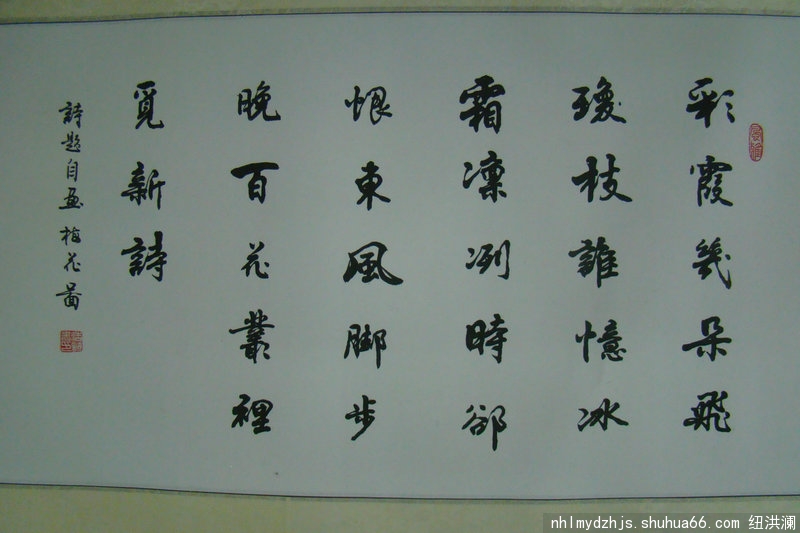 彩霞幾朵飛
瓊枝誰憶冰
霜凜冽時卻
恨東風脚步
晚百花叢裡
覓新詩
詩題自畫梅花圖
nhlmydzhjs.shuhua66.com 纽洪澜